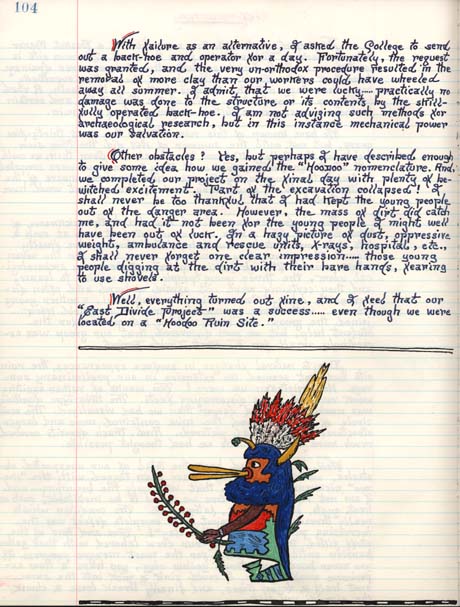 104
With failure as an alternative, I asked the College to send
out a back-hoe and operator for a day. Fortunately, the request
was granted, and the very un-orthodox procedure resulted in the
removal of more clay than our workers could have wheeled
away all summer. I admit, that we were lucky..... practically no
damage was done to the structure or its contents by the skill-
fully operated back-hoe. I am not advising such methods for
archaeological research, but in this instance mechanical power
was our salvation.
Other obstacles? Yes, but perhaps I have described enough
to give some idea, how we gained the "Hoodoo" nomenclature. And,
we completed our project on the final day with plenty of be-
witched excitement. Part of the excavation collapsed! I
shall never be too thankful that I had kept the young people
out of the danger area. However, the mass of dirt did catch
me, and had it not been for the young people I might well
have been out of luck. In a hazy picture of dust, oppressive
weight, ambulance and rescue units, X-rays, hospital, etc.,
I shall never forget one clear impression..... those young
people digging at the dirt with their bare hands, fearing
to use shovels.
Well, everything turned out fine, and I feel that our
"East Divide Project" was a success..... even though we were
located on a "Hoodoo Ruin Site."